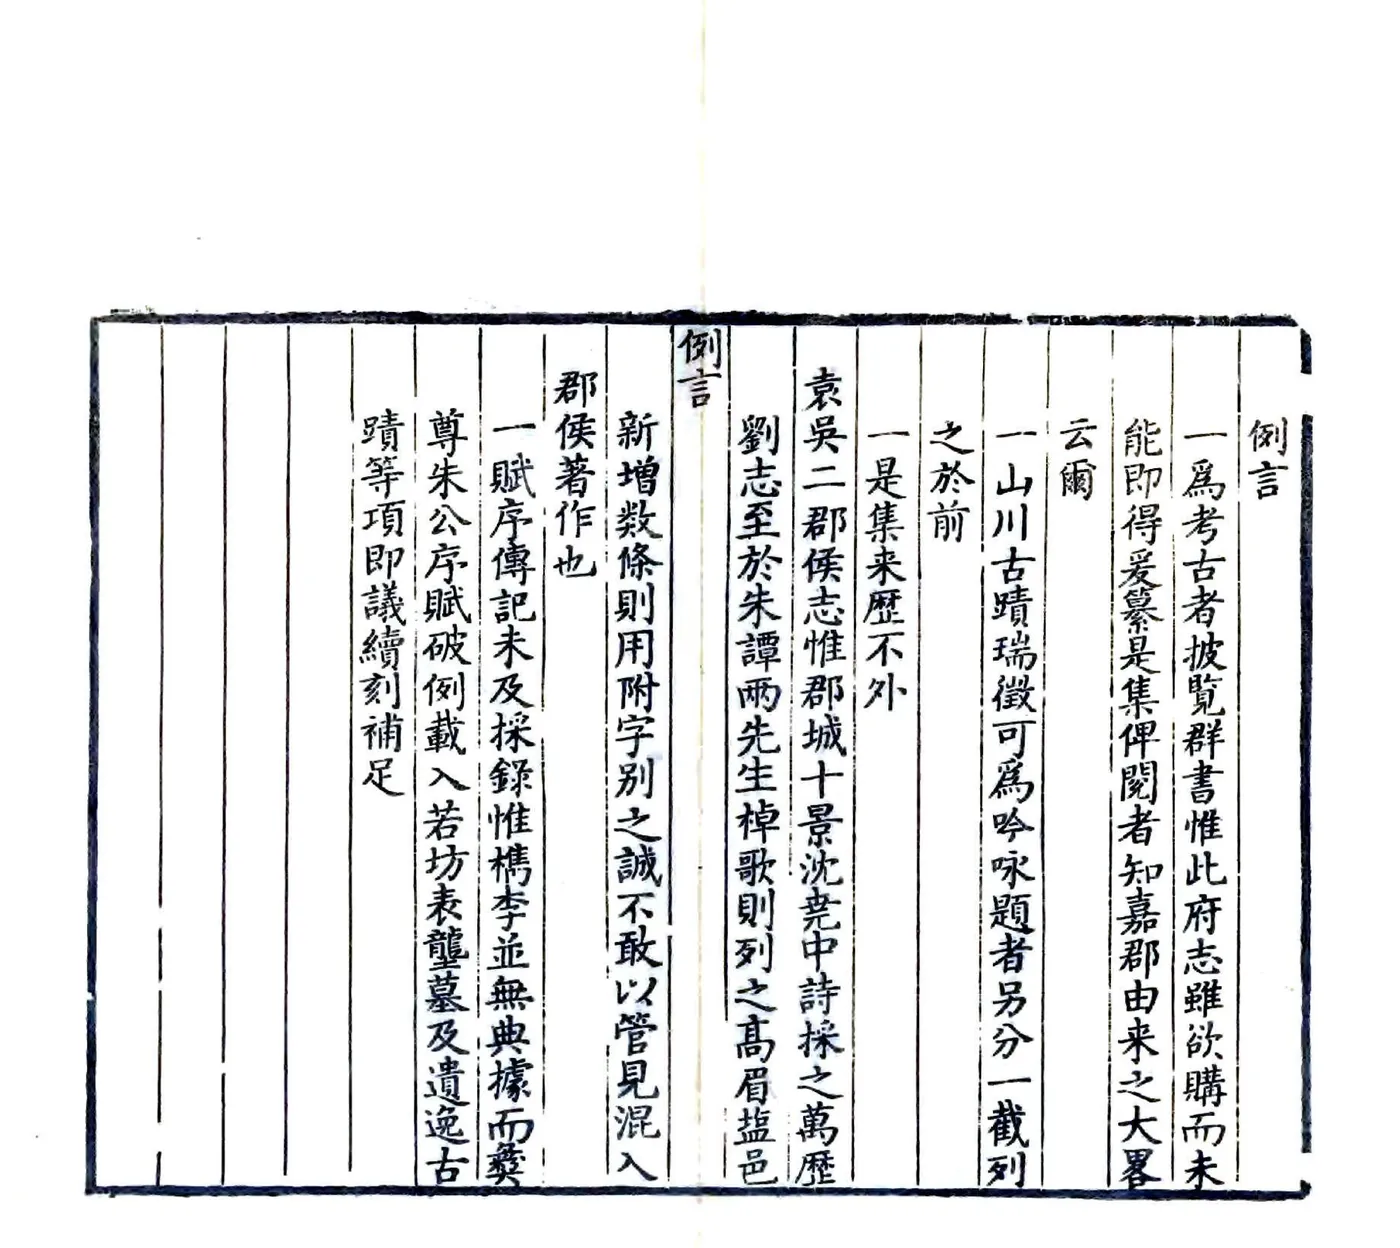 例言
一爲考古者披覧群書惟此府志雖欲購而未
能即得爰纂是集俾閱者知嘉郡由来之大畧
云爾
一山川古蹟瑞徵可爲吟咏題者另分一截列
之於前
一是集来歴不外
袁吳二郡侯志惟郡城十景沈堯中詩採之萬歴
劉志至於朱譚兩先生棹歌則列之髙眉盐邑
例言
新增数條則用附字别之誠不敢以管見混入
郡侯著作也
一賦序傳記未及採錄惟檇李並無典據而彝
尊朱公序賦破例載入若坊表壟墓及遺逸古
蹟等項即議續刻補足